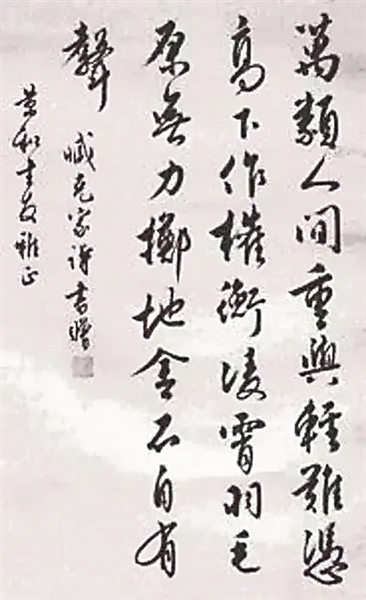 萬類人間重與輕難憑
高下作權衡凌霄羽毛
原無力擲地金石自有
聲
臧克家詩書贈
和書友雅正